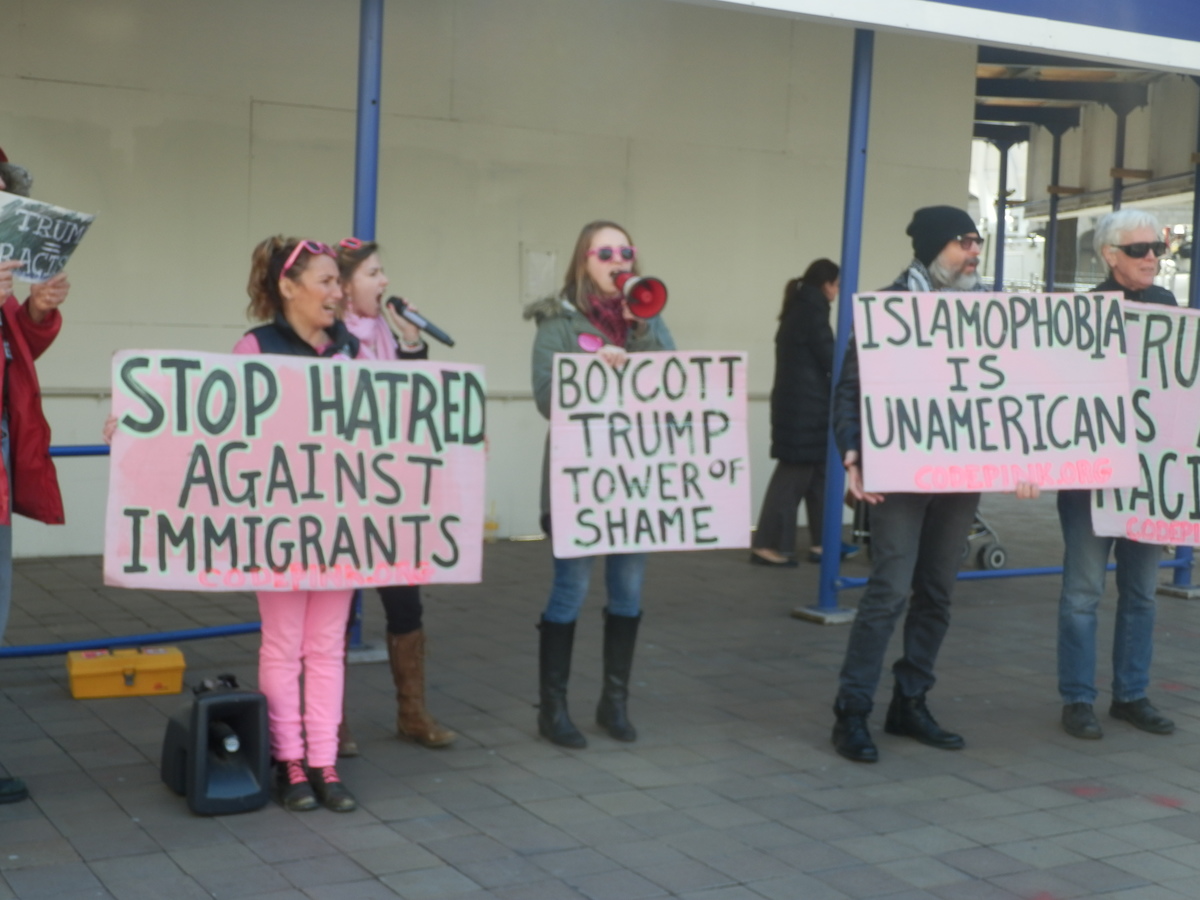 TRUM
=
RACIS
STOP HATRED
AGAINST
IMMIGRANTS
CODEPINK.ORG
BOYCOTT
TRUMP
TOWER OF
SHAME
ISLAMOPHOBIA
IS
UNAMERICAN
CODEPINK.ORG
TRU
S
RACI
CODEP